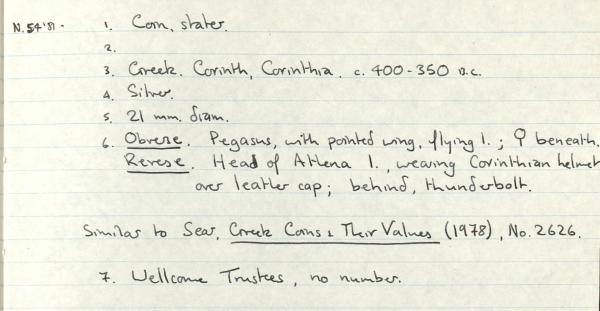 N.54'81.  1. Coin, stater.
2.
3. Greek. Corinth, Corinthia. c. 400-350 B.C.
4. Silver.
5. 21 mm. diam.
6. Obverse. Pegasus, with pointed wing, flying l.; Ϙ beneath.
Reverse. Head of Athena l., wearing Corinthian helmet
over leather cap; behind, thunderbolt.
Similar to Sear, Greek Coins & Their Values (1978), No. 2626.
7. Wellcome Trustees, no number.